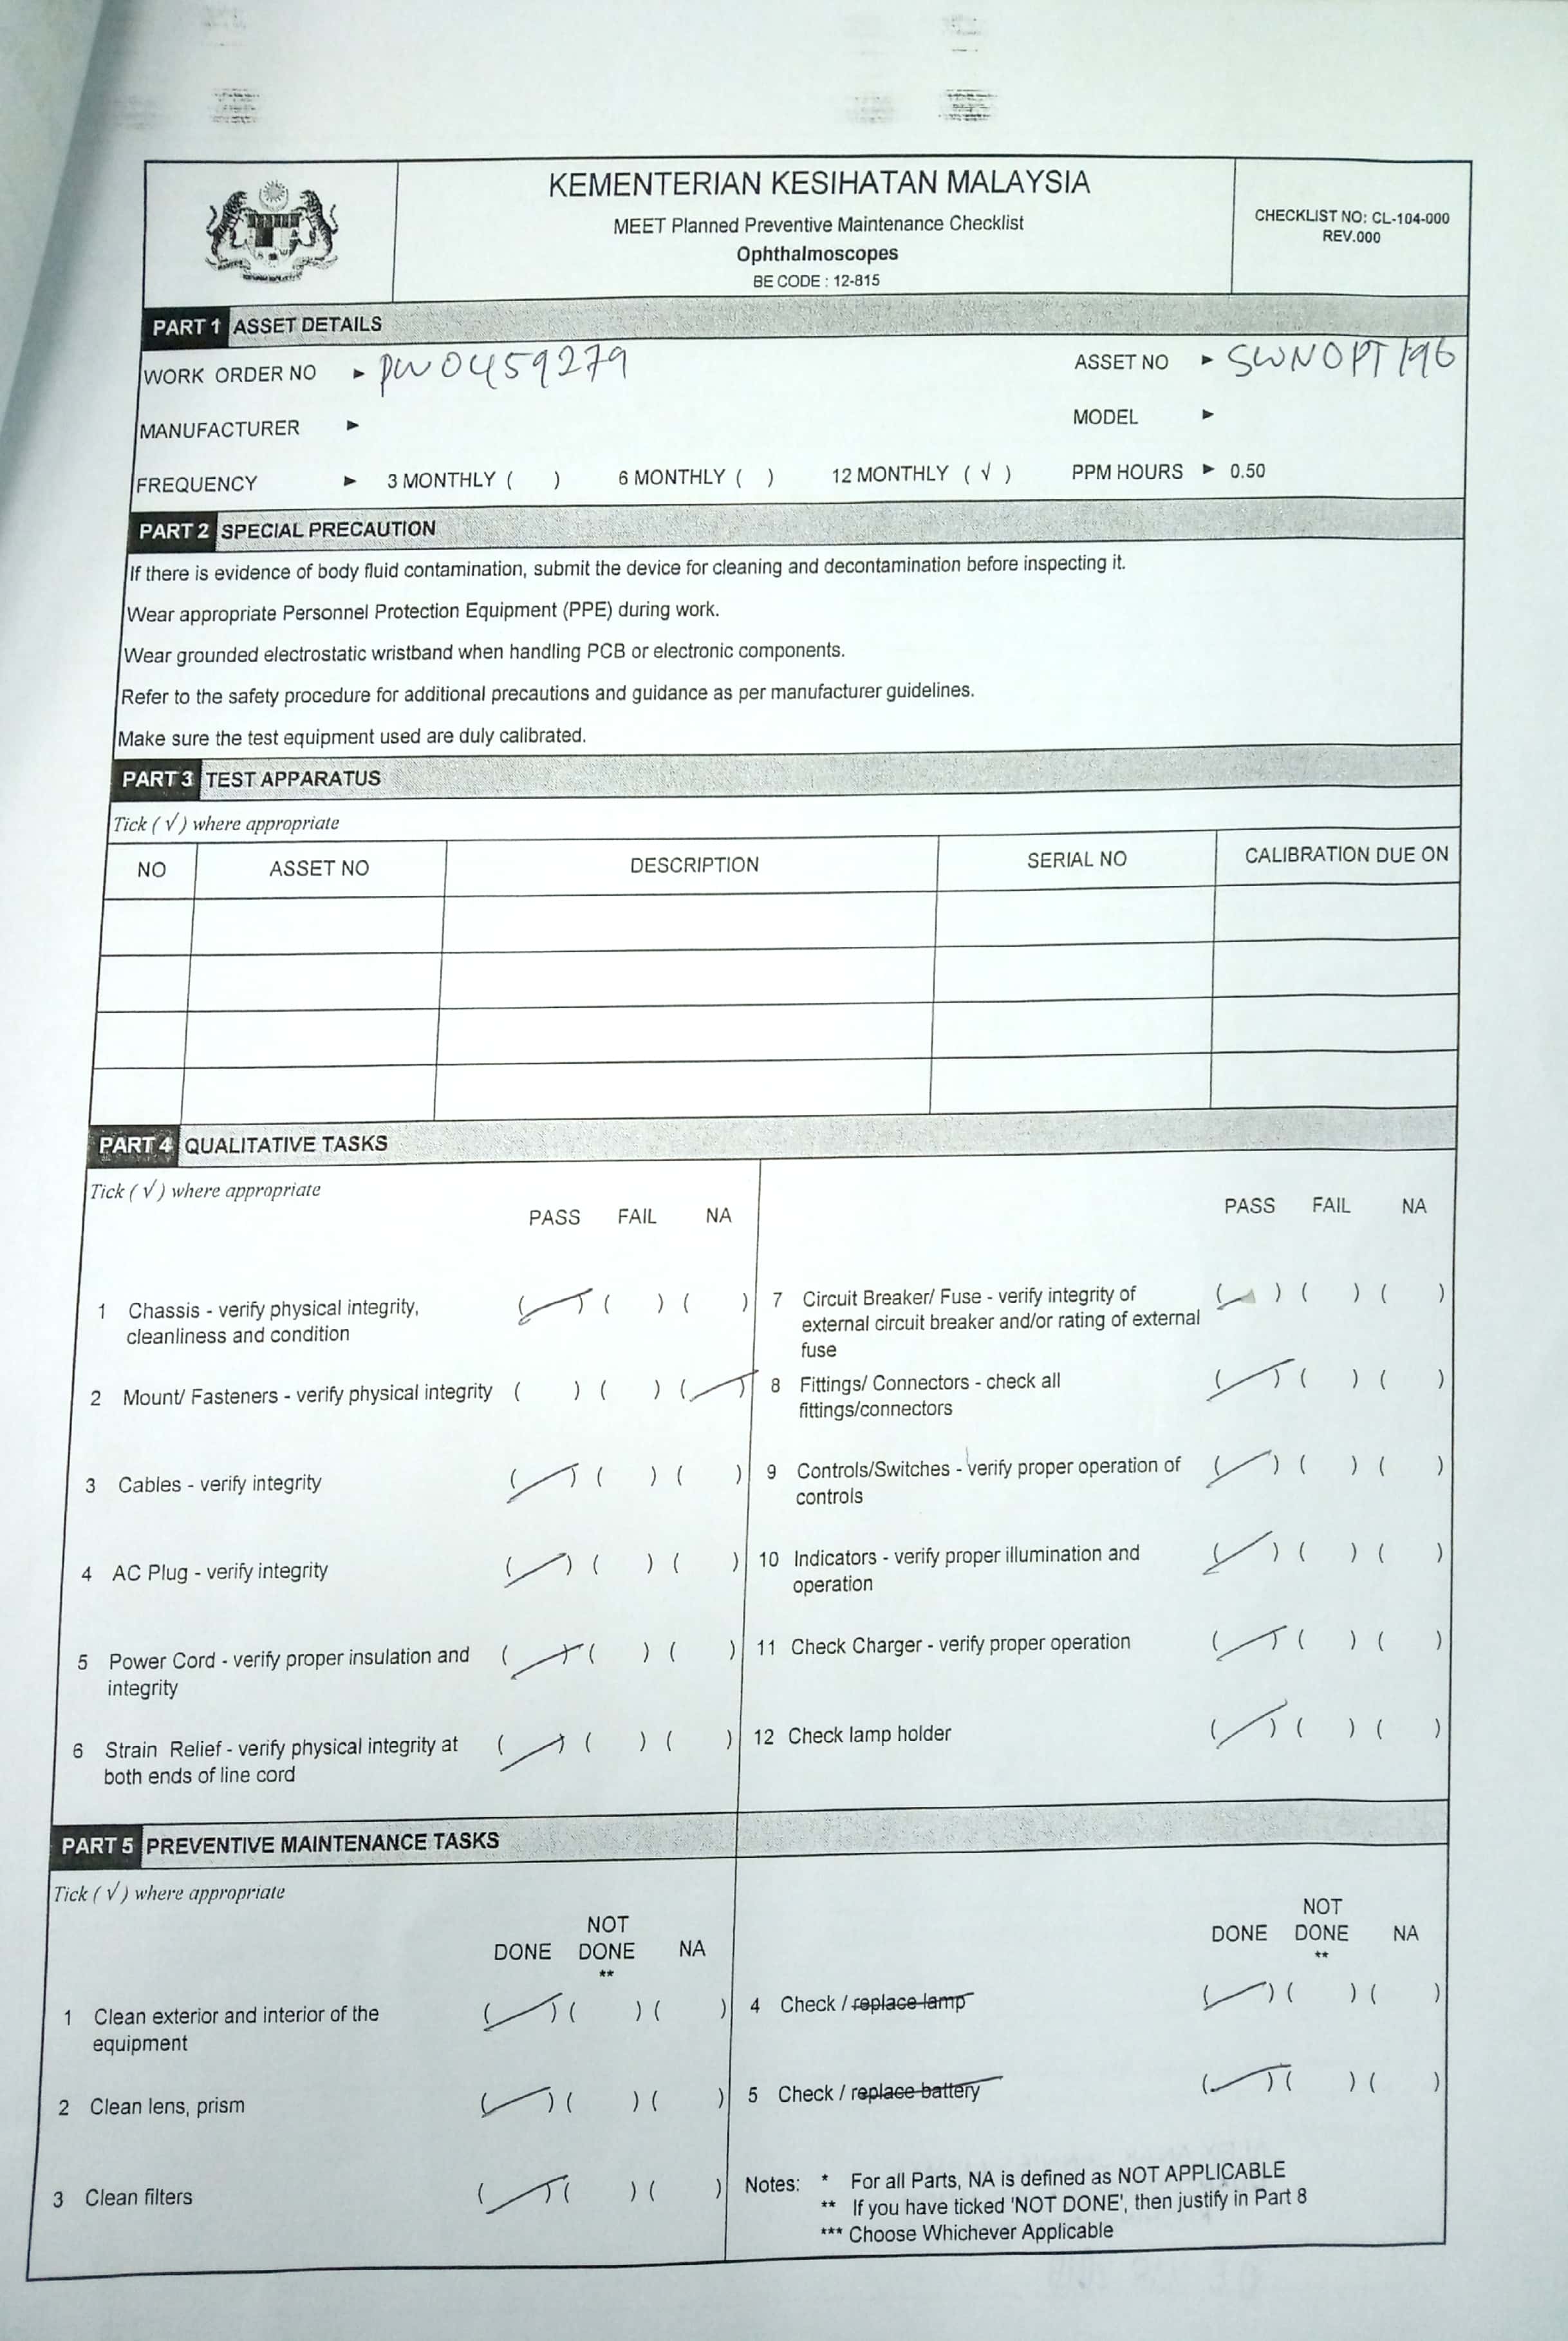 KEMENTERIAN KESIHATAN MALAYSIA
MEET Planned Preventive Maintenance Checklist
Ophthalmoscopes
BE CODE : 12-815
CHECKLIST NO: CL-104-000
REV.000
PART 1 ASSET DETAILS
WORK ORDER NO ► PW0459279 ASSET NO ► SWNOPT196
MANUFACTURER ► MODEL ►
FREQUENCY ► 3 MONTHLY ( ) 6 MONTHLY ( ) 12 MONTHLY ( √ ) PPM HOURS ► 0.50
PART 2 SPECIAL PRECAUTION
If there is evidence of body fluid contamination, submit the device for cleaning and decontamination before inspecting it.
Wear appropriate Personnel Protection Equipment (PPE) during work.
Wear grounded electrostatic wristband when handling PCB or electronic components.
Refer to the safety procedure for additional precautions and guidance as per manufacturer guidelines.
Make sure the test equipment used are duly calibrated.
PART 3 TEST APPARATUS
Tick ( √ ) where appropriate
NO ASSET NO DESCRIPTION SERIAL NO CALIBRATION DUE ON
PART 4 QUALITATIVE TASKS
Tick ( √ ) where appropriate
PASS FAIL NA
1 Chassis - verify physical integrity, (√) ( ) ( )
cleanliness and condition
2 Mount/ Fasteners - verify physical integrity ( ) ( ) (√)
3 Cables - verify integrity (√) ( ) ( )
4 AC Plug - verify integrity (√) ( ) ( )
5 Power Cord - verify proper insulation and (√) ( ) ( )
integrity
6 Strain Relief - verify physical integrity at (√) ( ) ( )
both ends of line cord
PASS FAIL NA
7 Circuit Breaker/ Fuse - verify integrity of (√) ( ) ( )
external circuit breaker and/or rating of external
fuse
8 Fittings/ Connectors - check all (√) ( ) ( )
fittings/connectors
9 Controls/Switches - verify proper operation of (√) ( ) ( )
controls
10 Indicators - verify proper illumination and (√) ( ) ( )
operation
11 Check Charger - verify proper operation (√) ( ) ( )
12 Check lamp holder (√) ( ) ( )
PART 5 PREVENTIVE MAINTENANCE TASKS
Tick ( √ ) where appropriate
NOT
DONE DONE NA
**
1 Clean exterior and interior of the (√) ( ) ( )
equipment
2 Clean lens, prism (√) ( ) ( )
3 Clean filters (√) ( ) ( )
NOT
DONE DONE NA
**
4 Check / replace lamp (√) ( ) ( )
5 Check / replace battery (√) ( ) ( )
Notes: * For all Parts, NA is defined as NOT APPLICABLE
** If you have ticked 'NOT DONE', then justify in Part 8
*** Choose Whichever Applicable